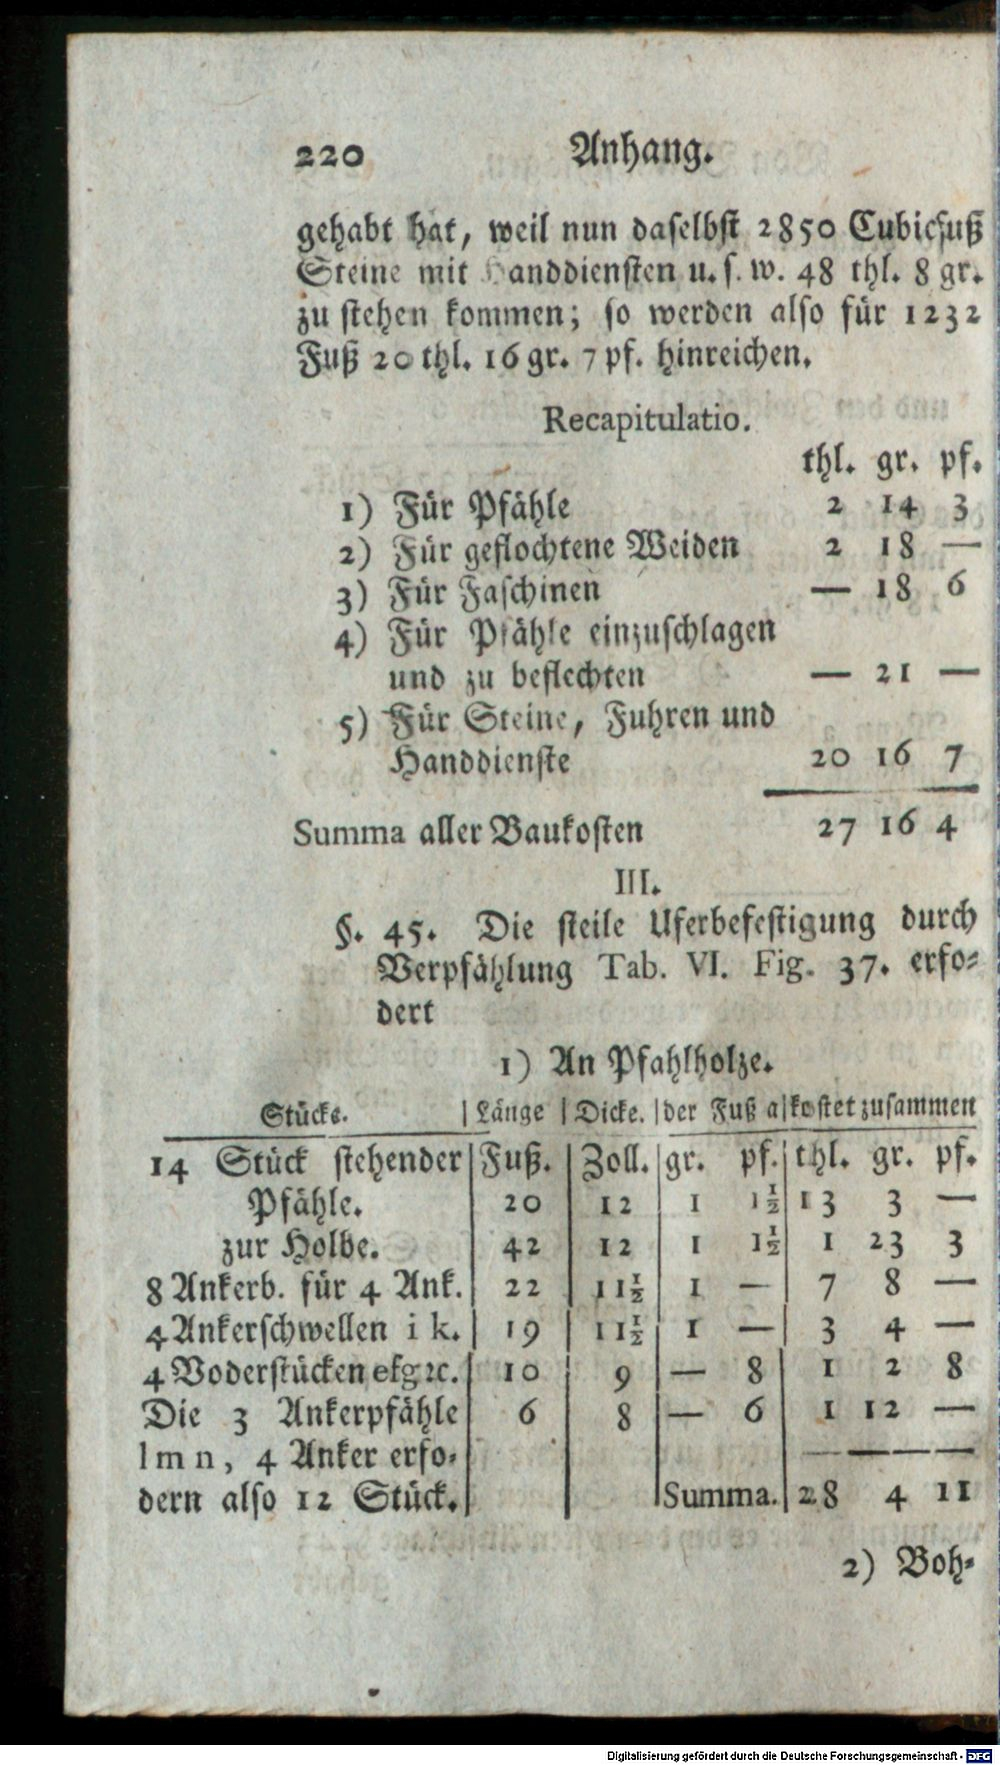 220 Anhang.
gehabt hat, weil nun daselbst 2850 Cubicfuß
Steine mit Handdiensten u. s. w. 48 thl. 8 gr.
zu stehen kommen; so werden also für 1232
Fuß 20 thl. 16 gr. 7 pf. hinreichen.
Recapitulatio.
thl. gr. pf.
1) Für Pfähle 2 14 3
2) Für geflochtene Weiden 2 18 —
3) Für Faschinen — 18 6
4) Für Pfähle einzuschlagen
und zu beflechten — 21 —
5) Für Steine, Fuhren und
Handdienste 20 16 7
Summa aller Baukosten 27 16 4
III.
§. 45. Die steile Uferbefestigung durch
Verpfählung Tab. VI. Fig. 37. erfo-
dert
1) An Pfahlholze.
Stücke. | Länge | Dicke. | der Fuß a | kostet zusammen
14 Stück stehender | Fuß. | Zoll. | gr. pf. | thl. gr. pf.
Pfähle. | 20 | 12 | 1 1½ | 13 3 —
zur Holbe. | 42 | 12 | 1 1½ | 1 23 3
8 Ankerb. für 4 Ank. | 22 | 11½ | 1 — | 7 8 —
4 Ankerschwellen i k. | 19 | 11½ | 1 — | 3 4 —
4 Voderstücken efg ꝛc. | 10 | 9 | — 8 | 1 2 8
Die 3 Ankerpfähle | 6 | 8 | — 6 | 1 12 —
l m n, 4 Anker erfo-
dern also 12 Stück. | Summa. | 28 4 11
2) Boh-
Digitalisierung gefördert durch die Deutsche Forschungsgemeinschaft - DFG